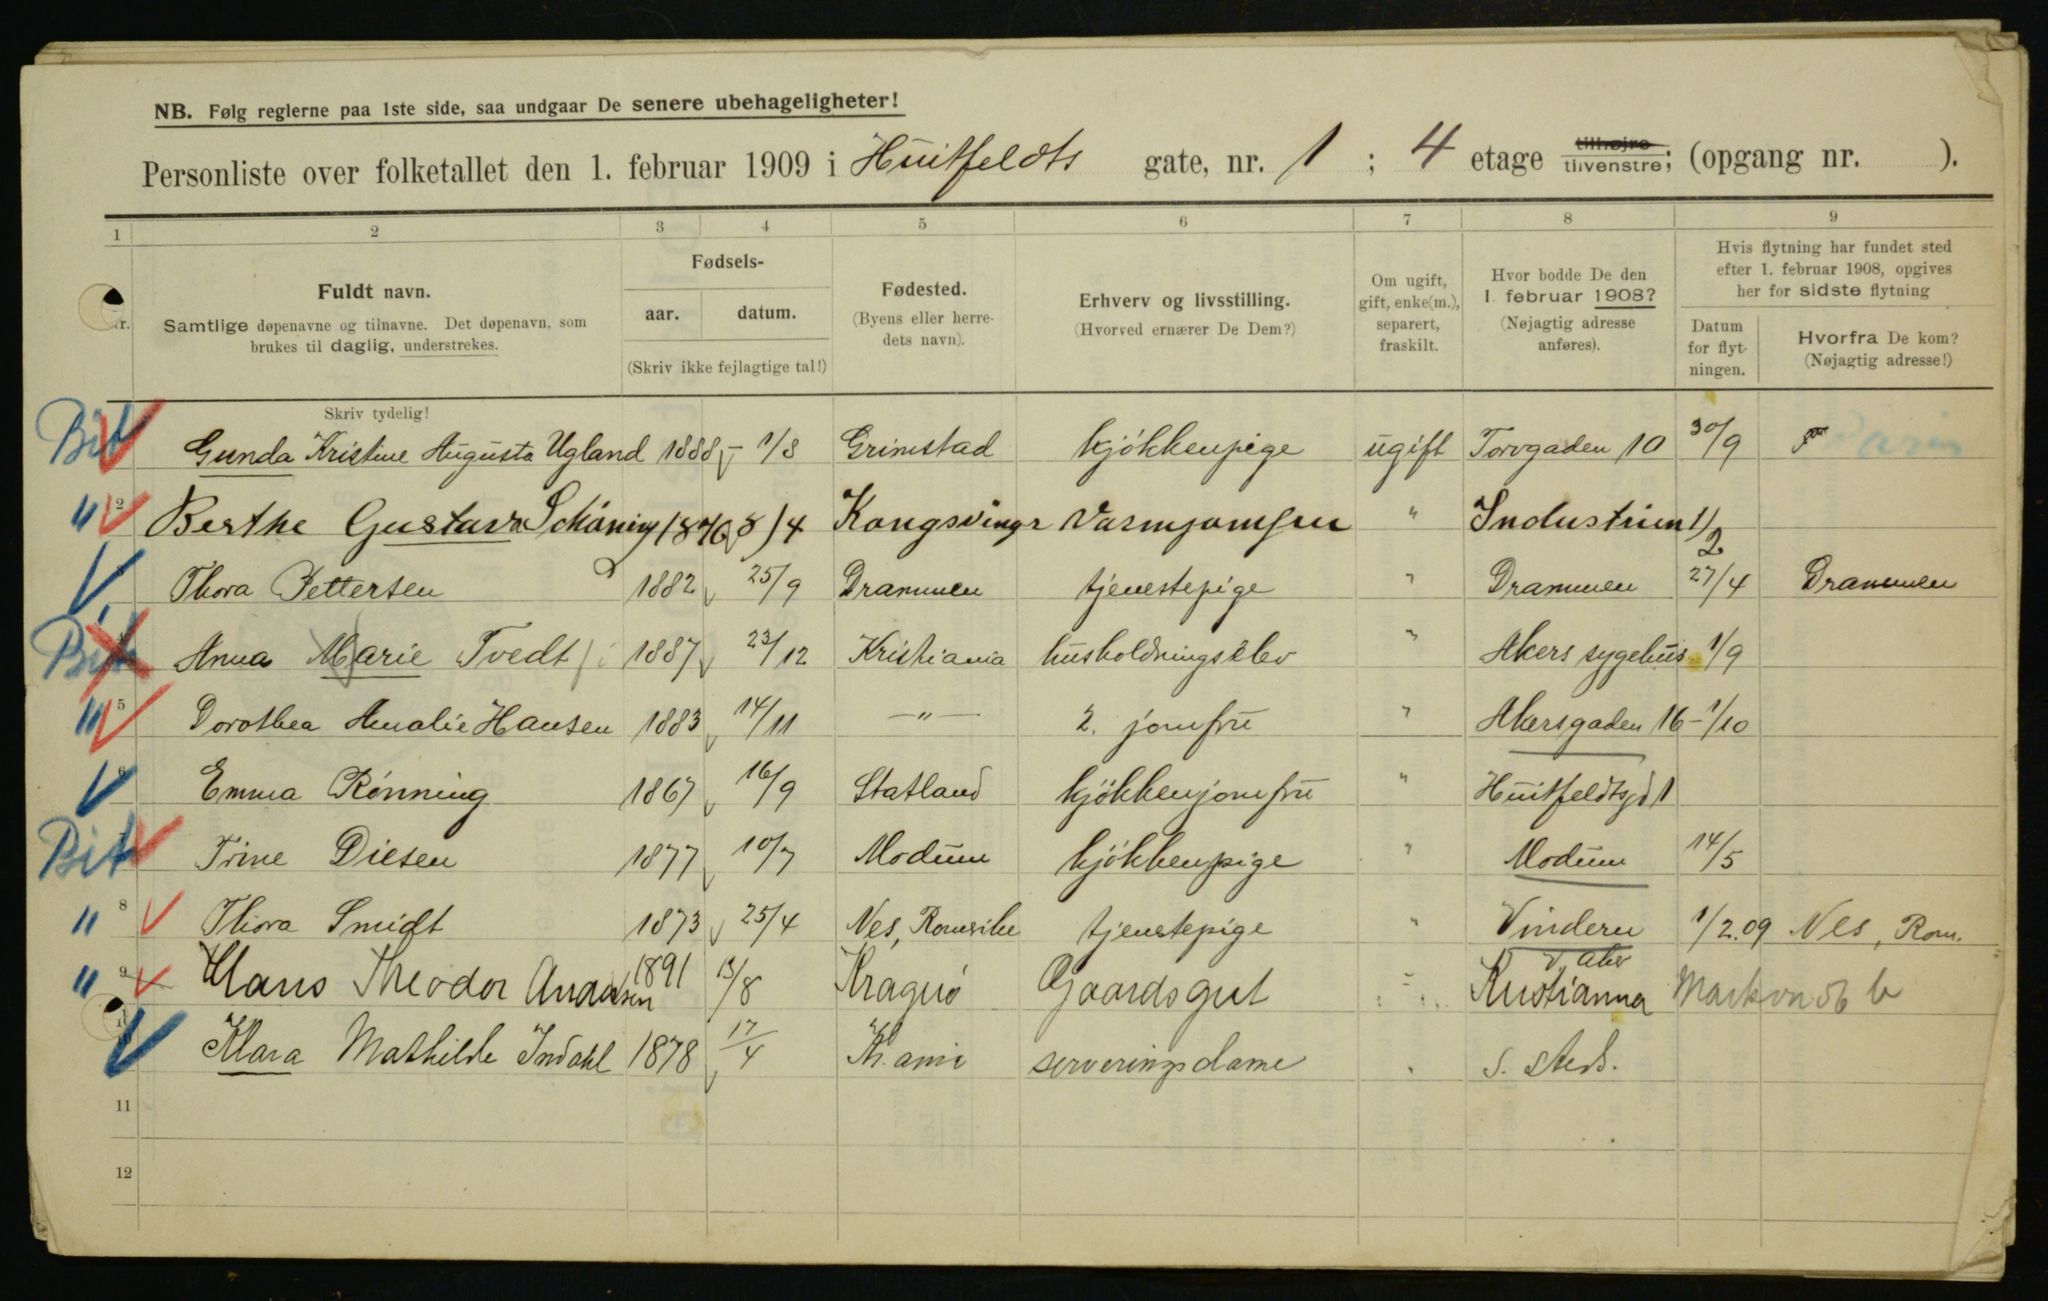 NB. Følg reglerne paa 1ste side, saa undgaar De senere ubehageligheter!
Personliste over folketallet den 1. februar 1909 i Huitfeldts gate, nr. 1 ; 4 etage tilhøjre tilvenstre; (opgang nr. ).
1 2 3 4 5 6 7 8 9
Fuldt navn.
Samtlige døpenavne og tilnavne. Det døpenavn, som
brukes til daglig, understrekes.
Fødsels-
aar. datum.
(Skriv ikke fejlagtige tal!)
Fødested.
(Byens eller herre-
dets navn).
Erhverv og livsstilling.
(Hvorved ernærer De Dem?)
Om ugift,
gift, enke(m.),
separert,
fraskilt.
Hvor bodde De den
1. februar 1908?
(Nøjagtig adresse
anføres).
Hvis flytning har fundet sted
efter 1. februar 1908, opgives
her for sidste flytning
Datum
for flyt-
ningen.
Hvorfra De kom?
(Nøjagtig adresse!)
Skriv tydelig!
Bit Gunda Kristine Augusta Ugland 1888 1/8 Grimstad kjökkenpige ugift Torvgaden 10 30/9
" 2 Berthe Gustava Schöning 1876 8/4 Kongsvinger Varmjomfru " Industrien 1/2
3 Thora Pettersen 1882 25/9 Drammen tjenestepige " Drammen 27/4 Drammen
Bit 4 Anna Marie Tvedt 1887 23/12 Kristiania husholdningselev " Akers sygehus 1/9
" 5 Dorothea Amalie Hansen 1883 14/11 —"— 2. jomfru " Akersgaden 16 – 1/10
6 Emma Rönning 1867 16/9 Statland kjökkenjomfru " Huitfeldtsgd 1
Bit 7 Trine Diesen 1877 10/7 Modum kjökkenpige " Modum 14/5
" 8 Thora Smidt 1873 25/4 Nes, Romerike tjenestepige " Vinderen 1/2.09 Nes, Rom.
v. Aker
" 9 Hans Theodor Andersen 1891 13/8 Kragerö Gaardsgut " Kristiania Markvn 56 b
Klara Mathilde Indahl 1878 17/4 Kr.ania serveringsdame " s. sted.
11
12